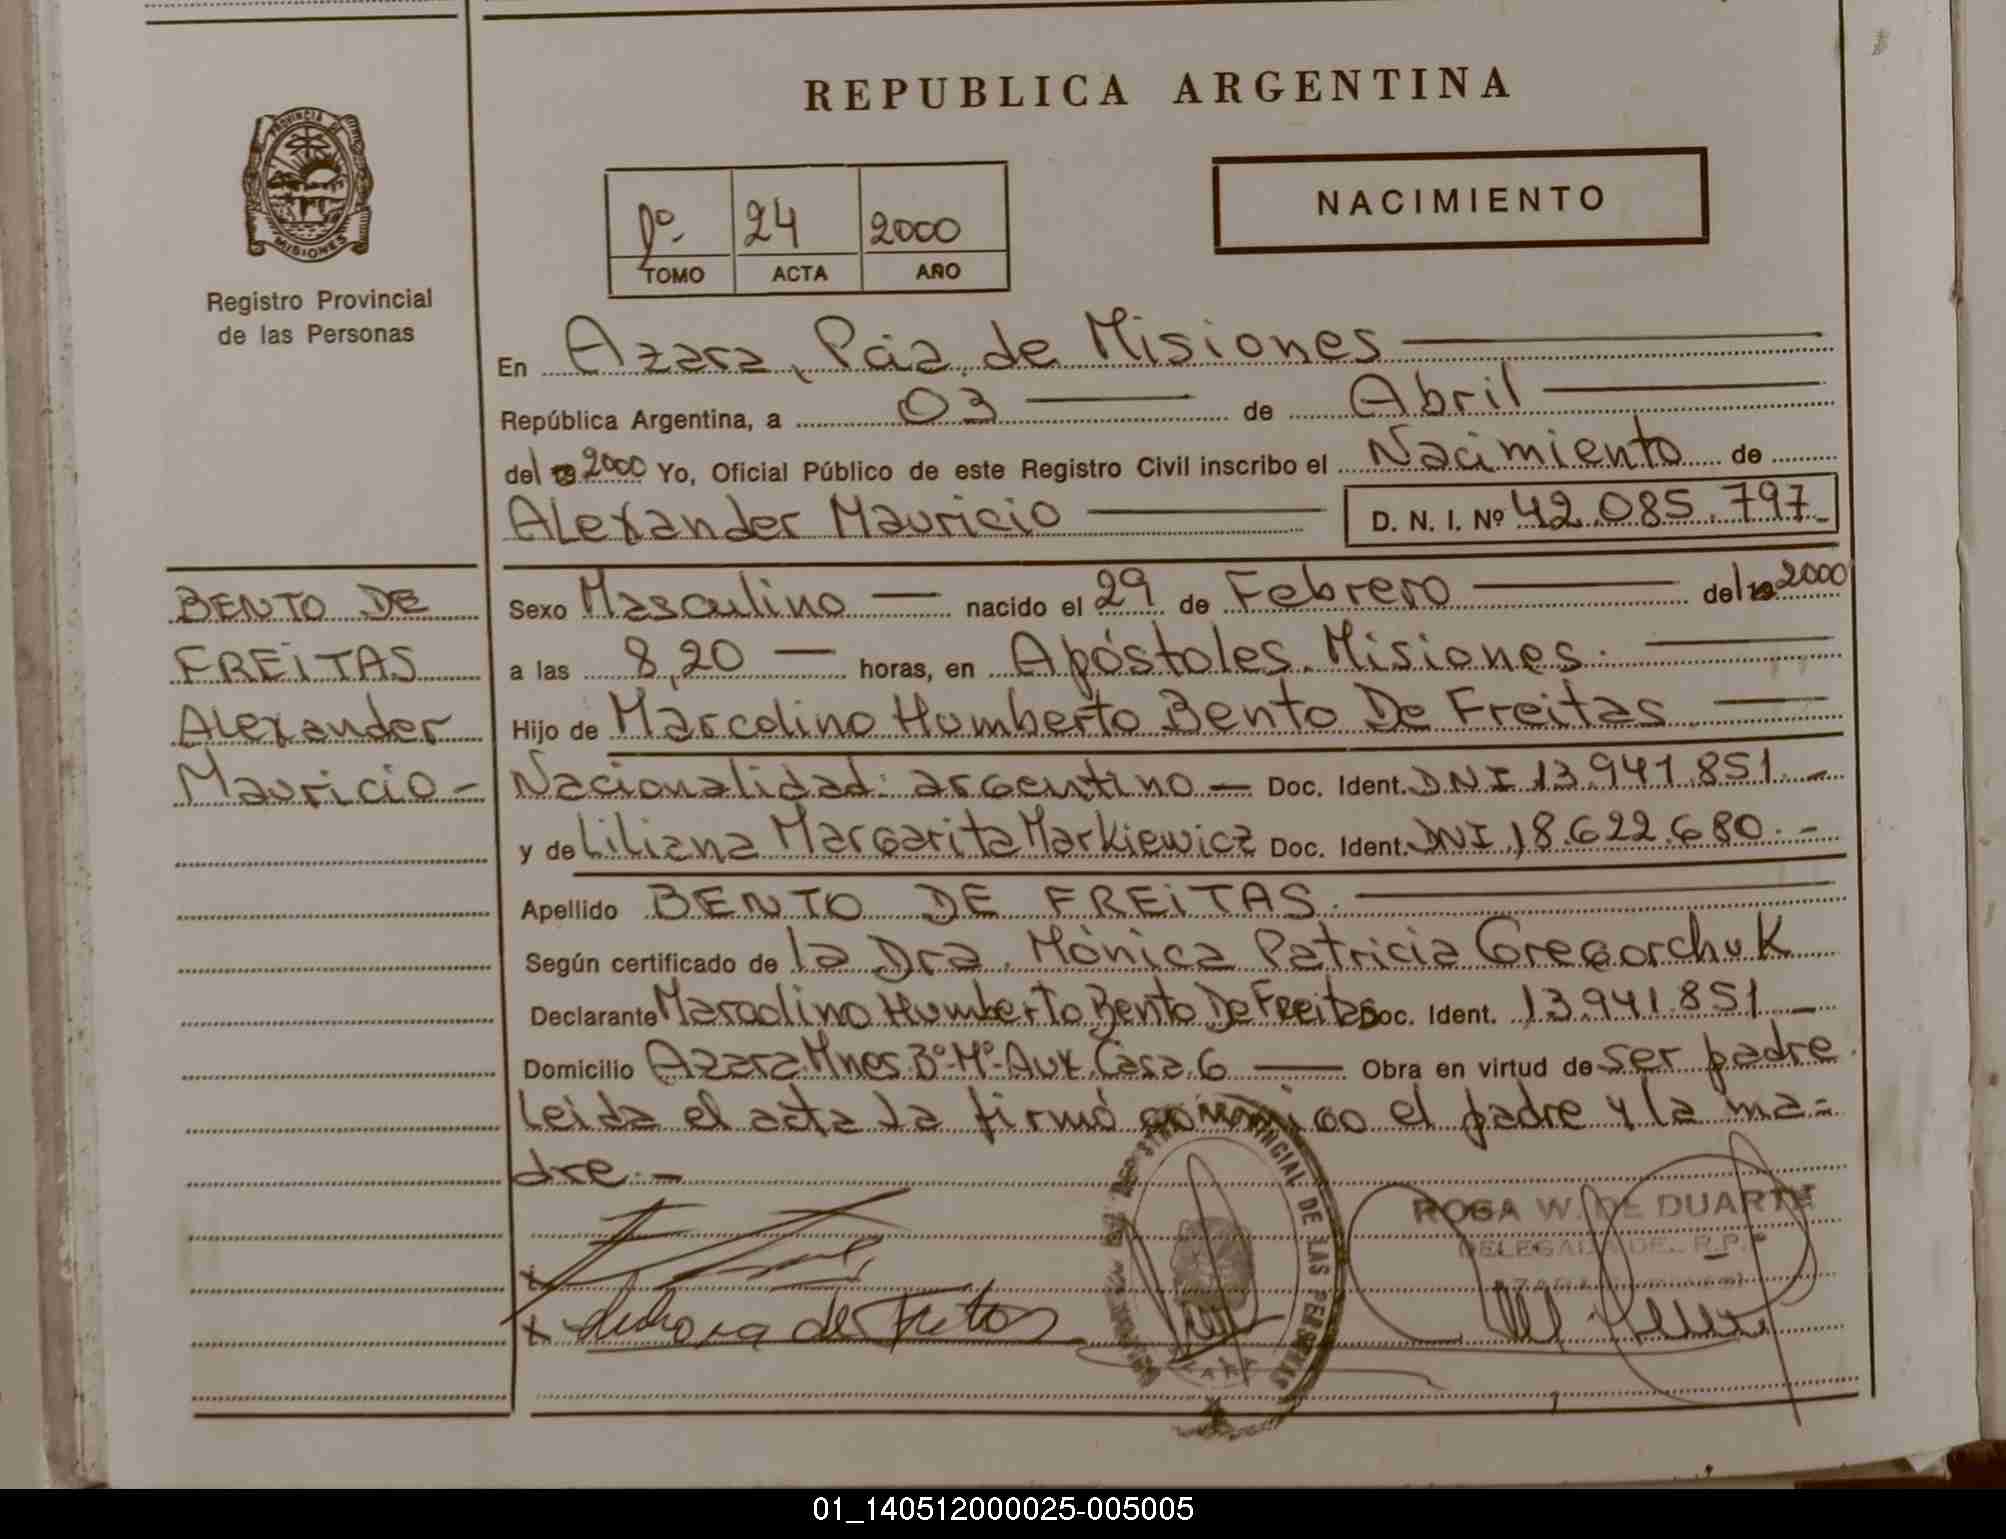 REPUBLICA ARGENTINA
PROVINCIA DE
MISIONES
Registro Provincial
de las Personas
NACIMIENTO
1º 24 2000
TOMO ACTA AÑO
En Azara, Pcia. de Misiones
República Argentina, a 03 de Abril
del 2000 Yo, Oficial Público de este Registro Civil inscribo el Nacimiento de
Alexander Mauricio D. N. I. Nº 42.085.797
BENTO DE
FREITAS
Alexander
Mauricio -
Sexo Masculino nacido el 29 de Febrero del 2000
a las 8,20 horas, en Apóstoles. Misiones.
Hijo de Marcelino Humberto Bento De Freitas
Nacionalidad: argentino - Doc. Ident. DNI 13.941.851. -
y de Liliana Margarita Markiewicz Doc. Ident. DNI 18.622.680. -
Apellido BENTO DE FREITAS.
Según certificado de la Dra. Mónica Patricia Gregorchuk
Declarante Marcelino Humberto Bento De Freitas Doc. Ident. 13.941.851
Domicilio Azara Mnes Bº Mº Aux. Casa 6 Obra en virtud de ser padre.
Leida el acta la firmó conmigo el padre y la ma-
dre.-
ROSA W. DE DUARTE
DELEGADA DEL R.P.P.
PROVINCIAL DE LAS PERSONAS
AZARA
x
x de Freitas
01_140512000025-005005